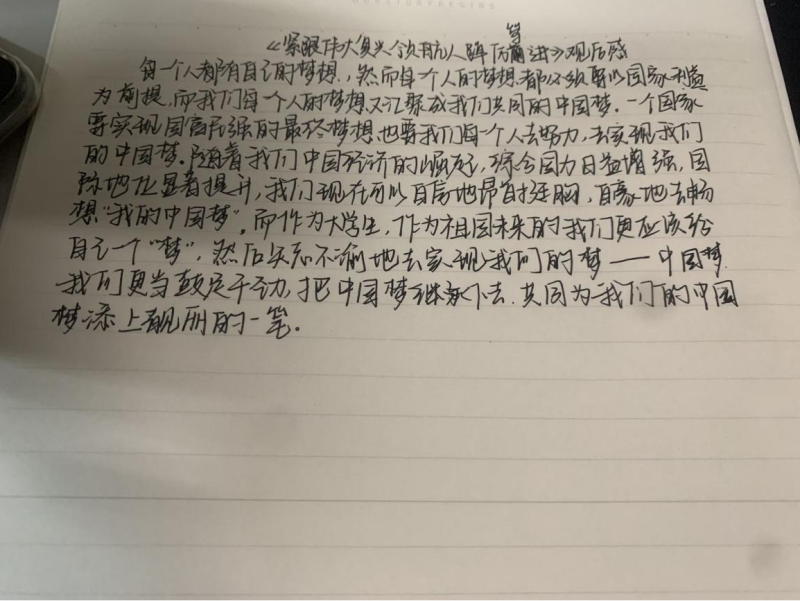 《紧跟伟大复兴领航人踔厉笃进》观后感
每一个人都有自己的梦想，然而每一个人的梦想都必须要以国家利益
为前提，而我们每一个人的梦想又汇聚成我们共同的中国梦．一个国家
要实现国富民强的最终梦想也要我们每一个人去努力，去实现我们
的中国梦．随着我们中国经济的崛起，综合国力日益增强，国
际地位显著提升，我们现在可以自信地昂首挺胸，自豪地去畅
想"我的中国梦"．而作为大学生，作为祖国未来的我们更应该给
自己一个"梦"，然后矢志不渝地去实现我们的梦——中国梦．
我们更当鼓足干劲，把中国梦继承下去．共同为我们的中国
梦添上靓丽的一笔．